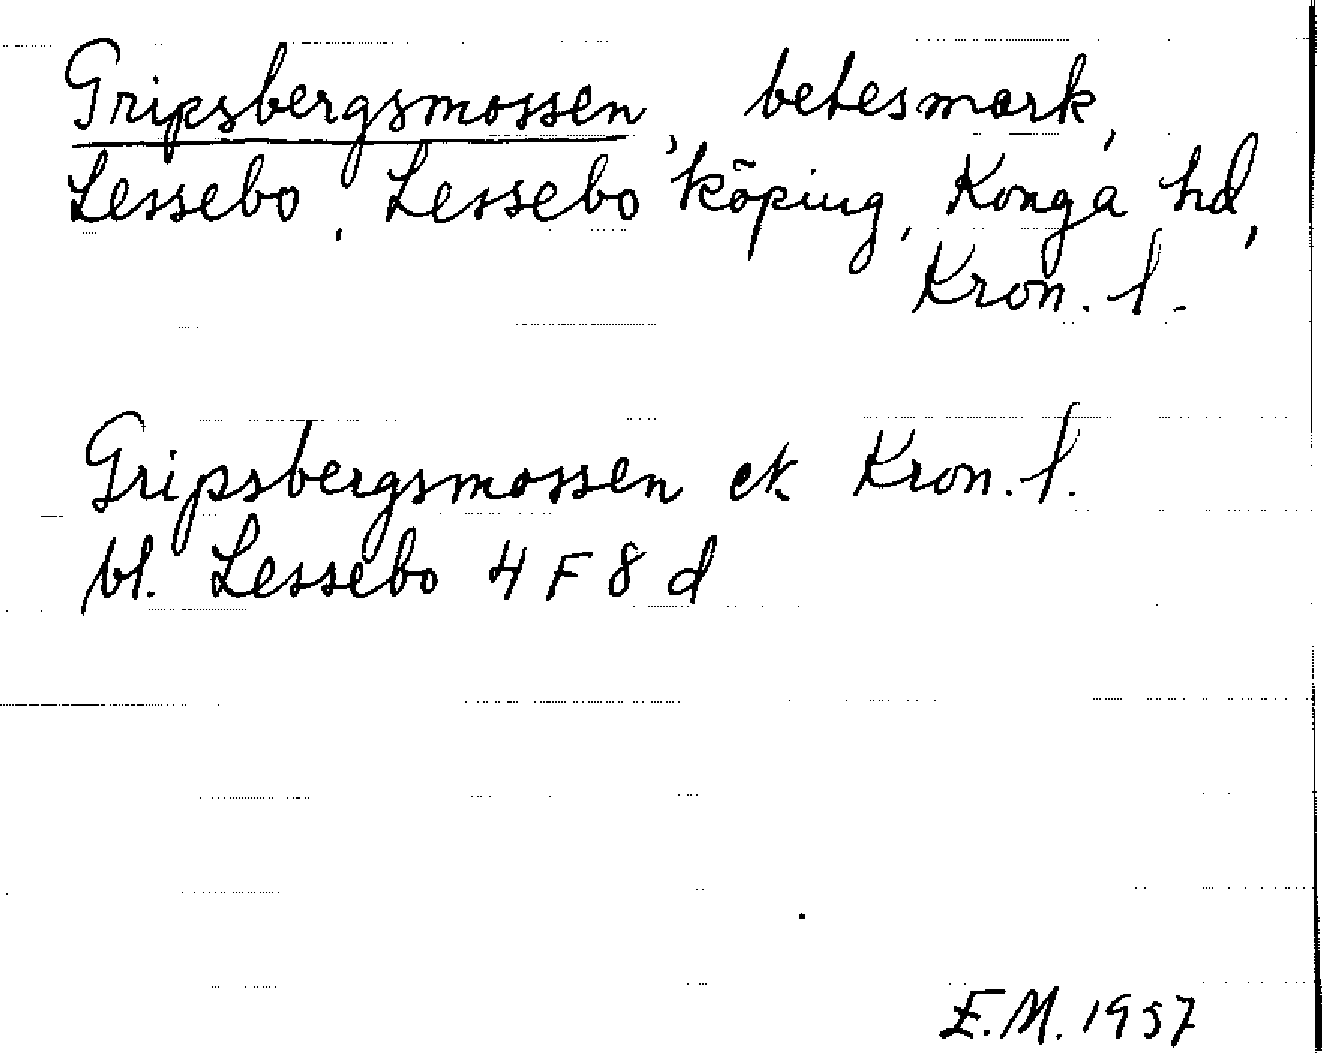 Gripsbergsmossen, betesmark,
Lessebo, Lessebo köping, Konga hd,
Kron. l.
Gripsbergsmossen ek. Kron. l.
bl. Lessebo 4 F 8 d
E.M. 1957